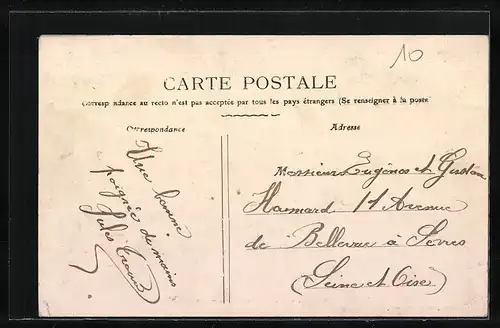 10
CARTE POSTALE
Correspondance au recto n'est pas acceptée par tous les pays étrangers (Se renseigner à la poste
Correspondance
Adresse
Une bonne
poignée de mains
Jules
Messieurs Eugènes et Gustave
11 Avenue
de Bellevue à Sevres
(Seine et Oise)